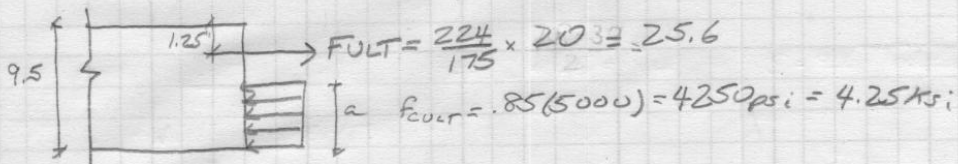 1.25"
FULT = 224/175 × 20 = 25.6
9.5
a fcult = .85(5000) = 4250psi = 4.25Ksi